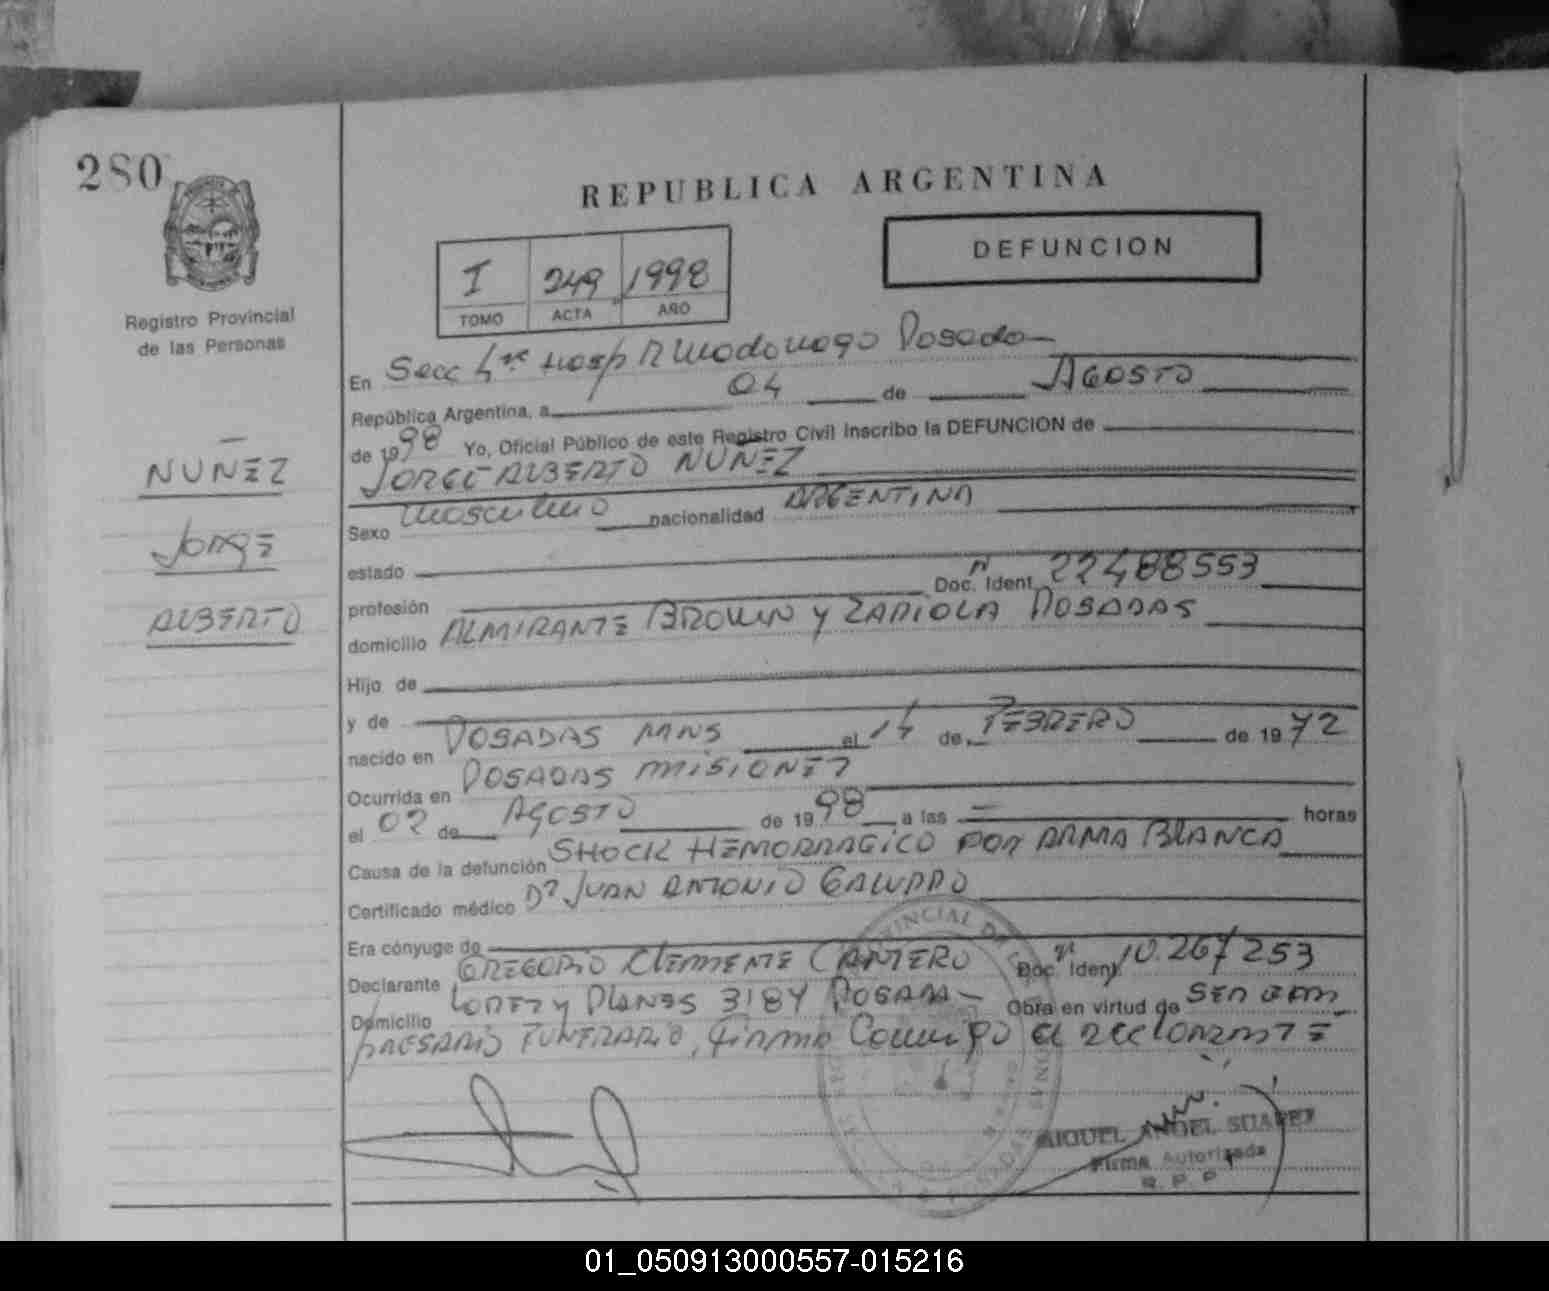 280
REPUBLICA ARGENTINA
DEFUNCION
I 249 1998
TOMO ACTA AÑO
Registro Provincial
de las Personas
NUÑEZ
JORGE
ALBERTO
En Secc 4ta Hosp R Madariaga Posadas
República Argentina, a 04 de AGOSTO
de 1998 Yo, Oficial Público de este Registro Civil inscribo la DEFUNCION de
JORGE ALBERTO NUÑEZ
Sexo masculino nacionalidad ARGENTINA
estado
profesión Doc. Ident. Nº 22488553
domicilio ALMIRANTE BROWN y ZAPIOLA POSADAS
Hijo de
y de
nacido en POSADAS MNS el 14 de FEBRERO de 1972
Ocurrida en POSADAS MISIONES
el 02 de AGOSTO de 1998 a las = horas
Causa de la defunción SHOCK HEMORRAGICO POR ARMA BLANCA
Certificado médico Dr JUAN ANTONIO GALUPPO
Era cónyuge de
Declarante GREGORIO CLEMENTE CANTERO Doc. Ident. Nº 10.267253
Domicilio LOPEZ y PLANES 3184 POSADAS Obra en virtud de SER EM
PRESARIO FUNERARIO, firma Conmigo el declarante
MIGUEL ANGEL SUAREZ
Firma Autorizada
R. P. P.
01_050913000557-015216